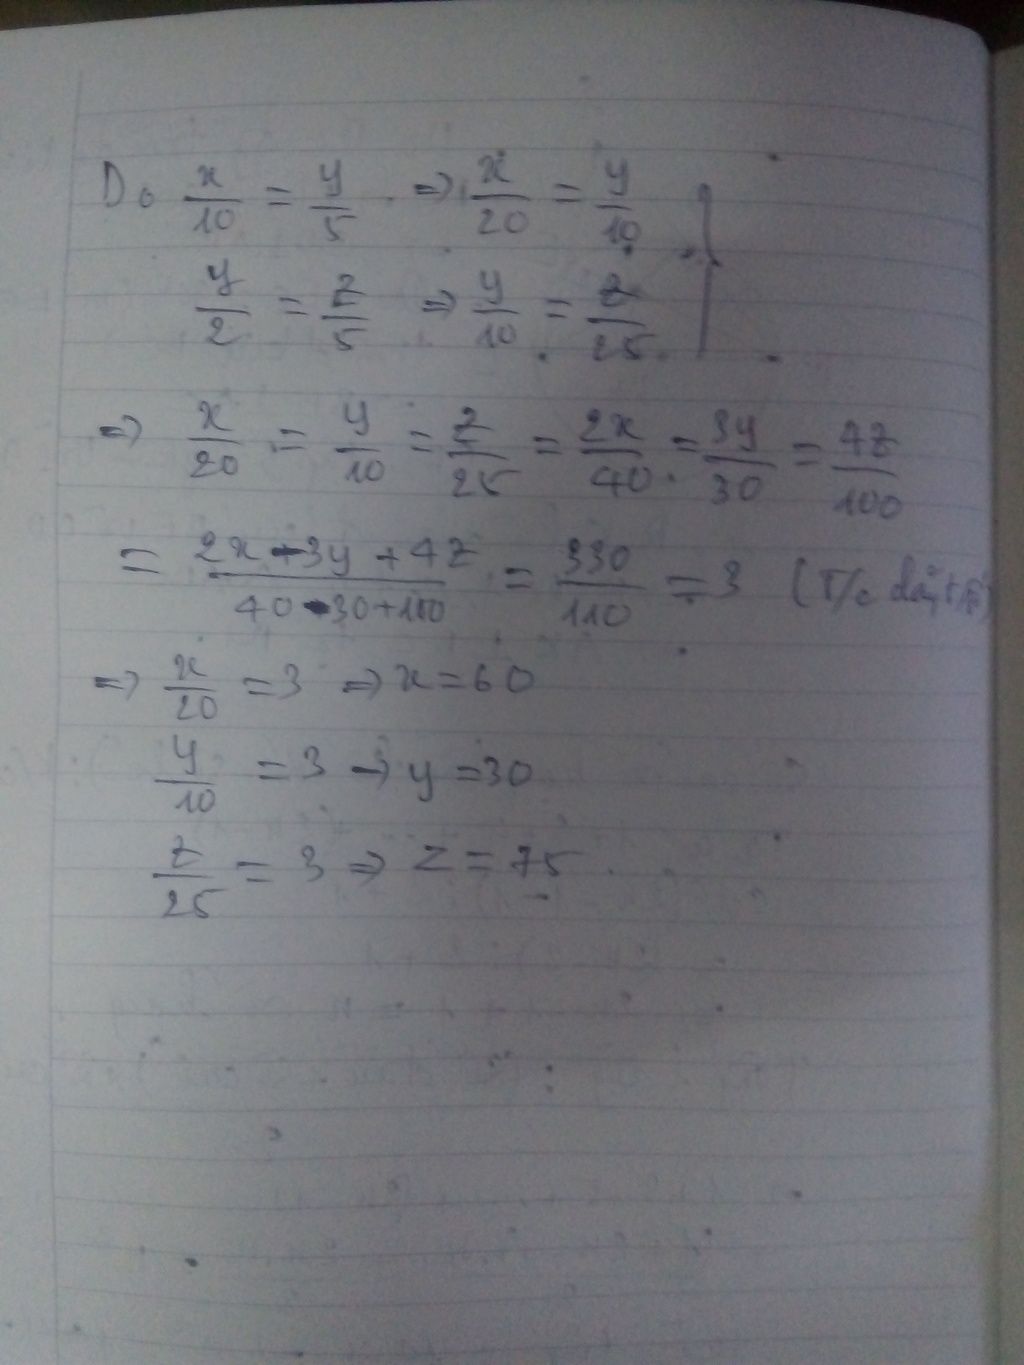 Do x/10 = y/5 => x/20 = y/10
y/2 = z/5 => y/10 = z/25
=> x/20 = y/10 = z/25 = 2x/40 = 3y/30 = 4z/100
= (2x - 3y + 4z)/(40 - 30 + 100) = 330/110 = 3 (T/c dãy t/s)
=> x/20 = 3 => x = 60
y/10 = 3 => y = 30
z/25 = 3 => z = 75